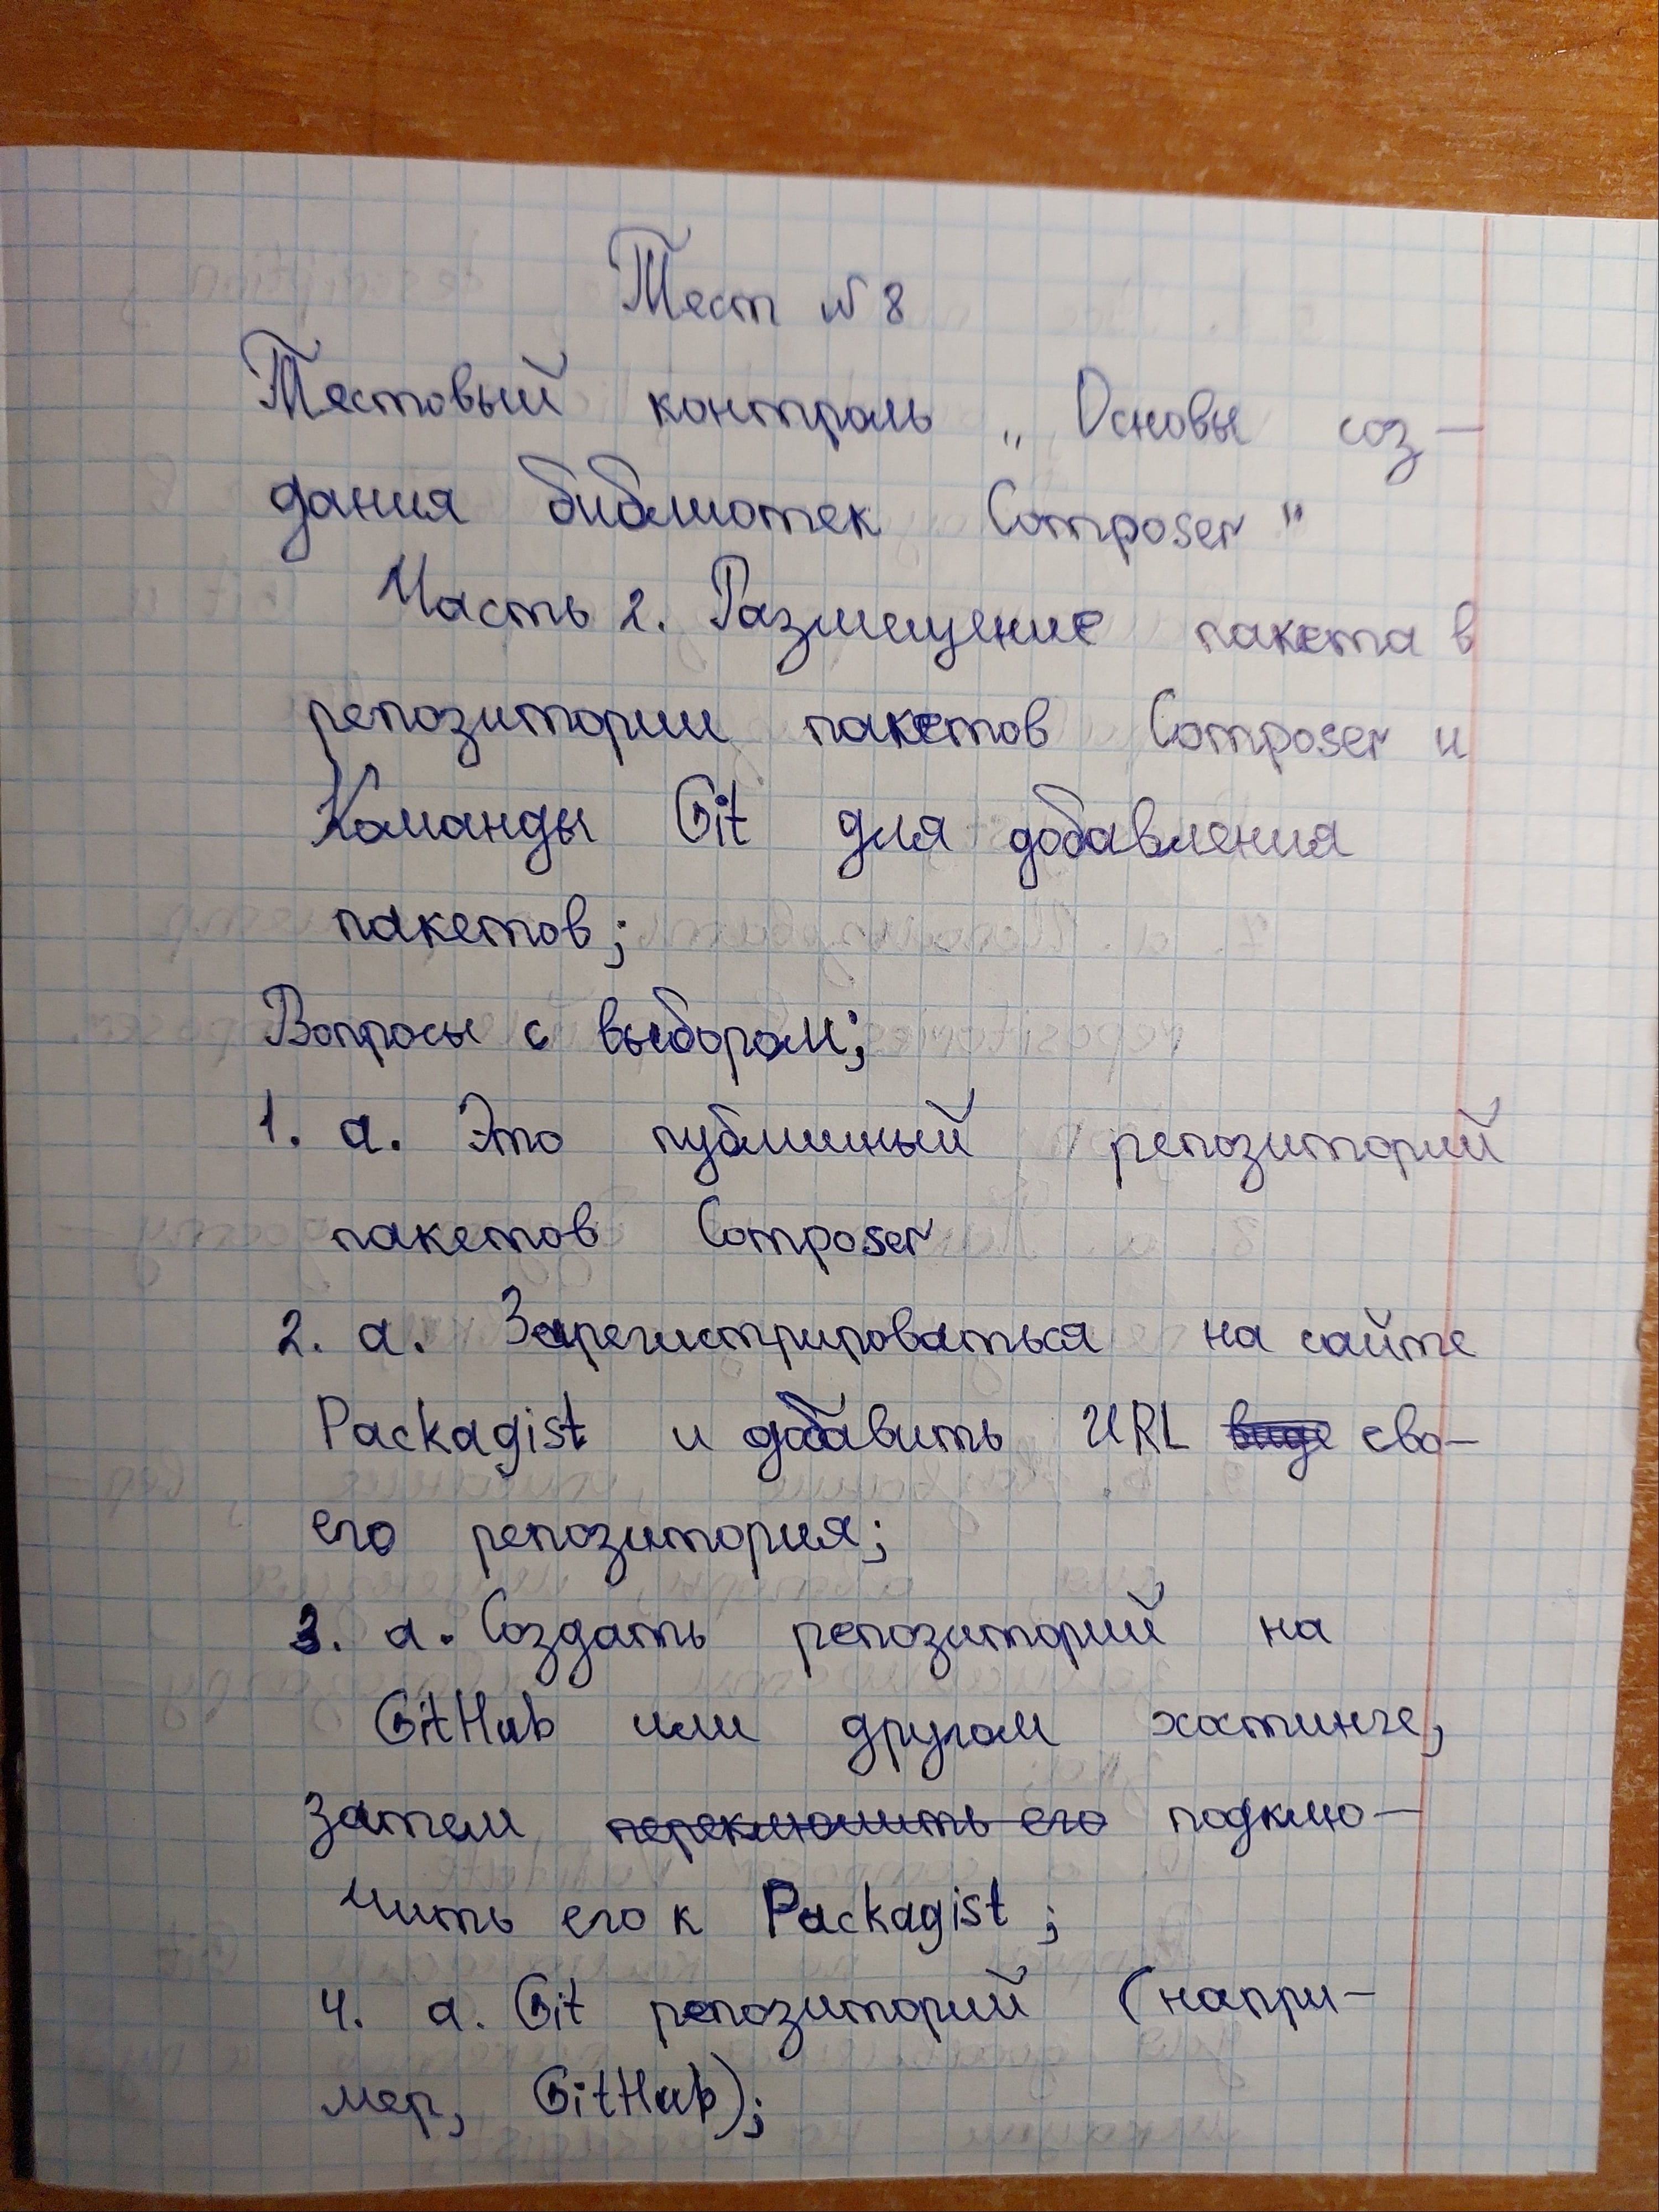 Тест №8
Тестовый контроль „Основы соз-
дания библиотек Composer"
Часть 2. Размещение пакета в
репозитории пакетов Composer и
Команды Git для добавления
пакетов;
Вопросы с выбором;
1. а. Это публичный репозиторий
пакетов Composer
2. а. Зарегистрироваться на сайте
Packagist и добавить URL сво-
его репозитория;
3. а. Создать репозиторий на
GitHub или другом хостинге,
затем переключить его подклю-
чить его к Packagist;
4. а. Git репозиторий (напри-
мер, GitHub);